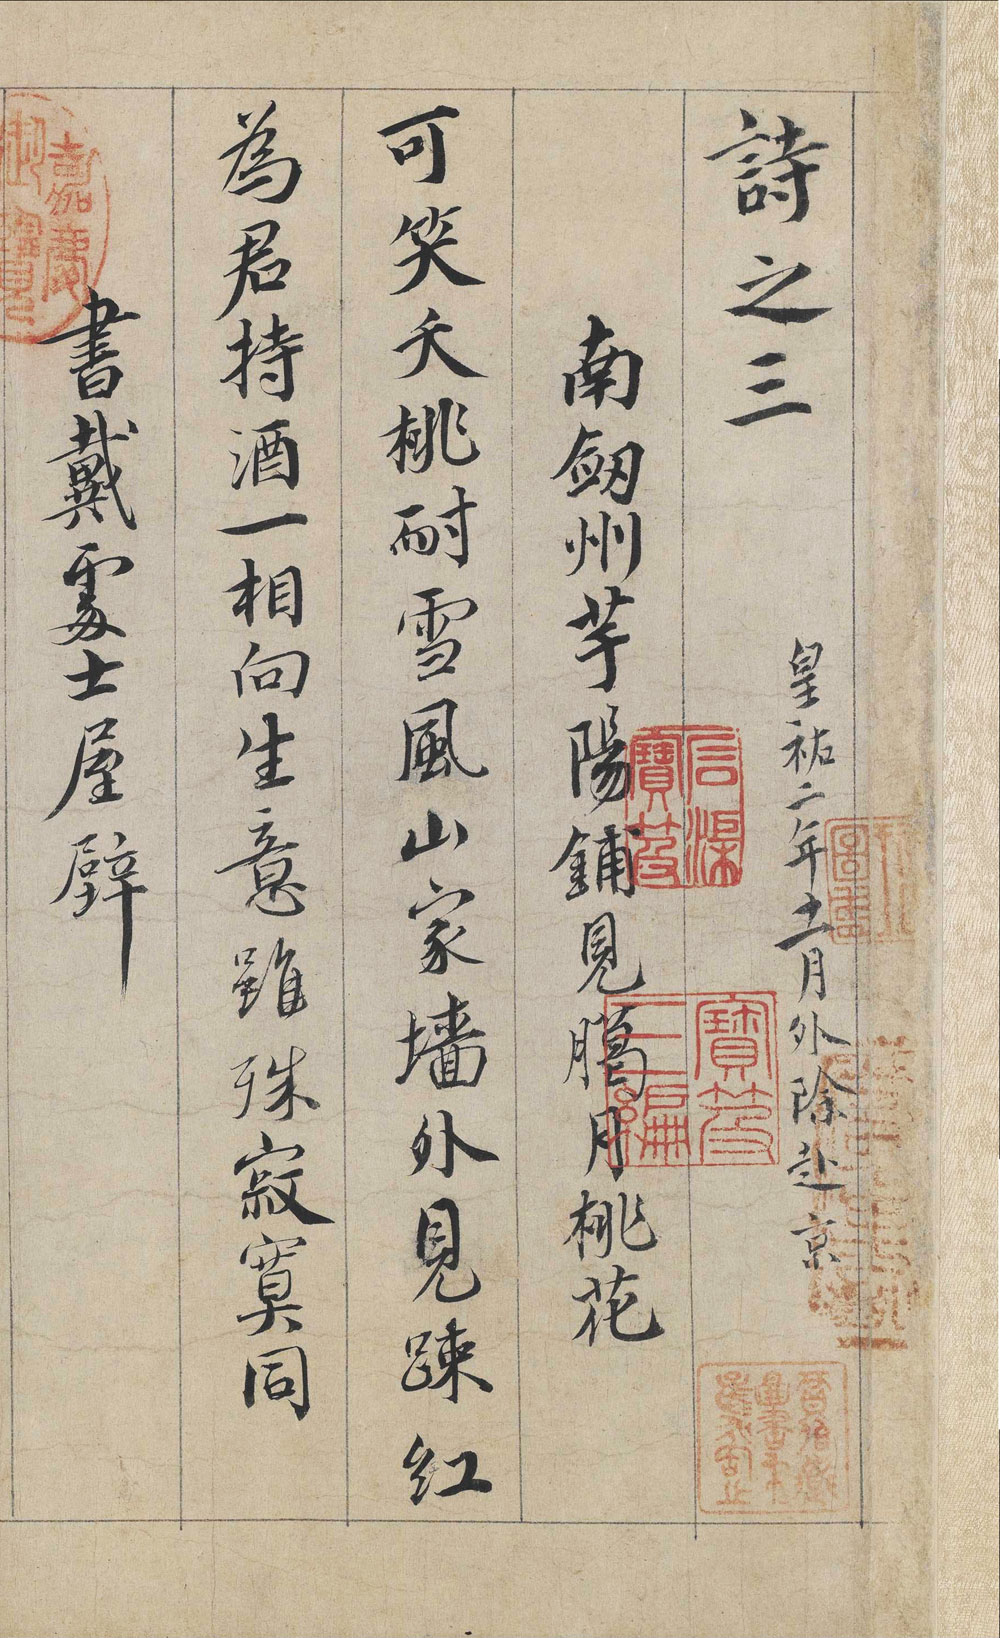 詩之三
皇祐二年十一月外除赴京
南劔州芋陽鋪見臈月桃花
可笑夭桃耐雪風山家墻外見踈紅
為君持酒一相向生意雖殊寂寞同
書戴處士屋壁
嘉慶御覽之寶
寶笈三編